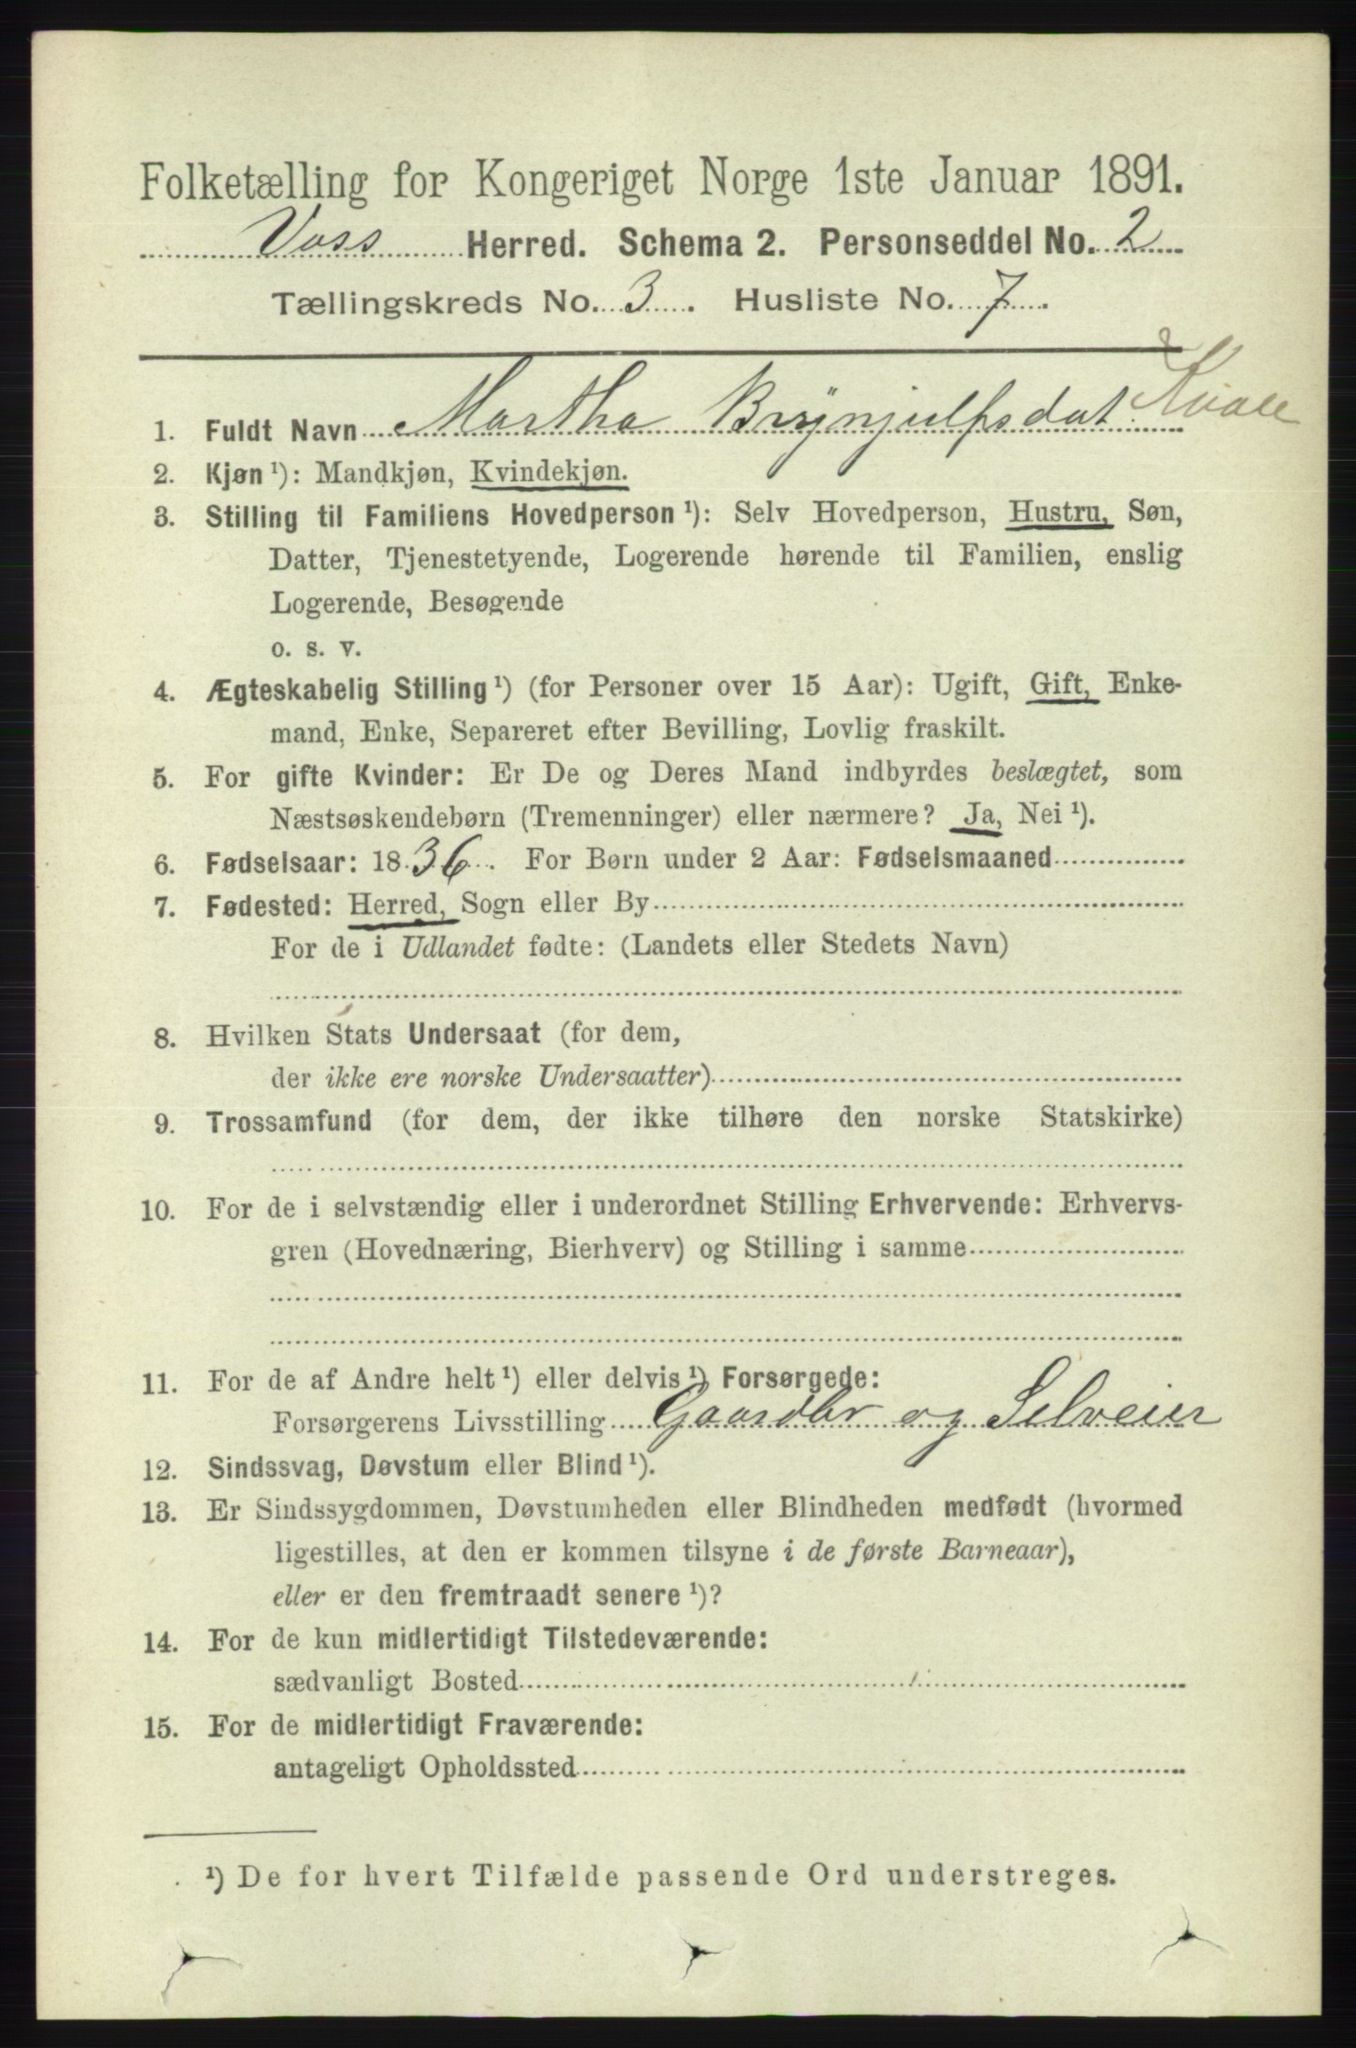 Folketælling for Kongeriget Norge 1ste Januar 1891.
Voss Herred. Schema 2. Personseddel No. 2
Tællingskreds No. 3. Husliste No. 7.
1. Fuldt Navn Martha Brynjulfsdat. Kvale
2. Kjøn ¹): Mandkjøn, Kvindekjøn.
3. Stilling til Familiens Hovedperson ¹): Selv Hovedperson, Hustru, Søn,
Datter, Tjenestetyende, Logerende hørende til Familien, enslig
Logerende, Besøgende
o. s. v.
4. Ægteskabelig Stilling ¹) (for Personer over 15 Aar): Ugift, Gift, Enke-
mand, Enke, Separeret efter Bevilling, Lovlig fraskilt.
5. For gifte Kvinder: Er De og Deres Mand indbyrdes beslægtet, som
Næstsøskendebørn (Tremenninger) eller nærmere? Ja, Nei ¹).
6. Fødselsaar: 1836. For Børn under 2 Aar: Fødselsmaaned
7. Fødested: Herred, Sogn eller By
For de i Udlandet fødte: (Landets eller Stedets Navn)
8. Hvilken Stats Undersaat (for dem,
der ikke ere norske Undersaatter)
9. Trossamfund (for dem, der ikke tilhøre den norske Statskirke)
10. For de i selvstændig eller i underordnet Stilling Erhvervende: Erhvervs-
gren (Hovednæring, Bierhverv) og Stilling i samme
11. For de af Andre helt ¹) eller delvis ¹) Forsørgede:
Forsørgerens Livsstilling Gaardbr og Selveier
12. Sindssvag, Døvstum eller Blind ¹).
13. Er Sindssygdommen, Døvstumheden eller Blindheden medfødt (hvormed
ligestilles, at den er kommen tilsyne i de første Barneaar),
eller er den fremtraadt senere ¹)?
14. For de kun midlertidigt Tilstedeværende:
sædvanligt Bosted
15. For de midlertidigt Fraværende:
antageligt Opholdssted
¹) De for hvert Tilfælde passende Ord understreges.